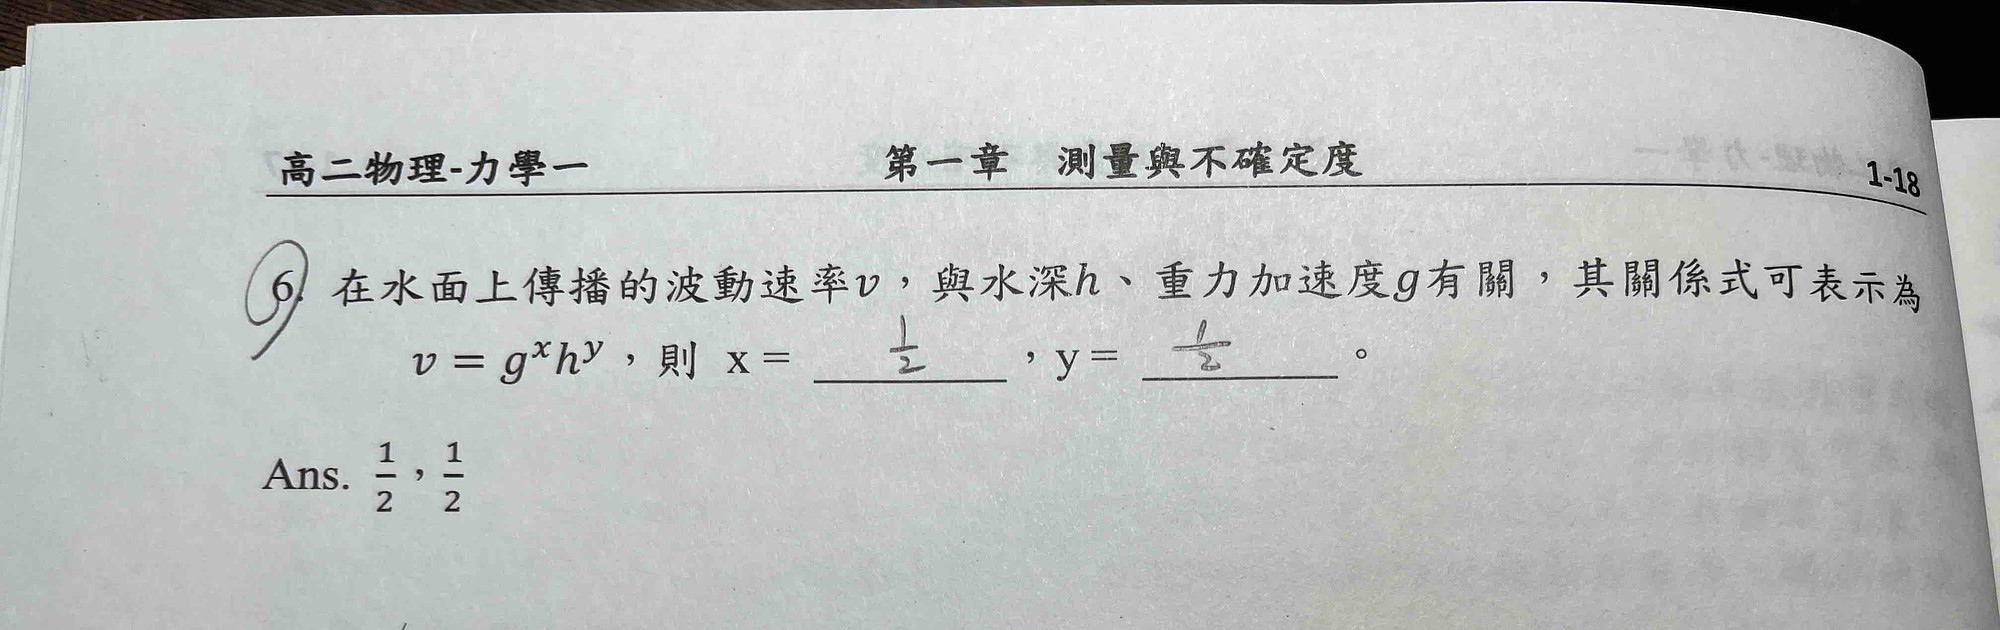 高二物理-力學一 第一章 測量與不確定度 1-18
6. 在水面上傳播的波動速率v，與水深h、重力加速度g有關，其關係式可表示為
v = gˣhʸ，則 x = 1/2 ，y = 1/2 。
Ans. 1/2，1/2